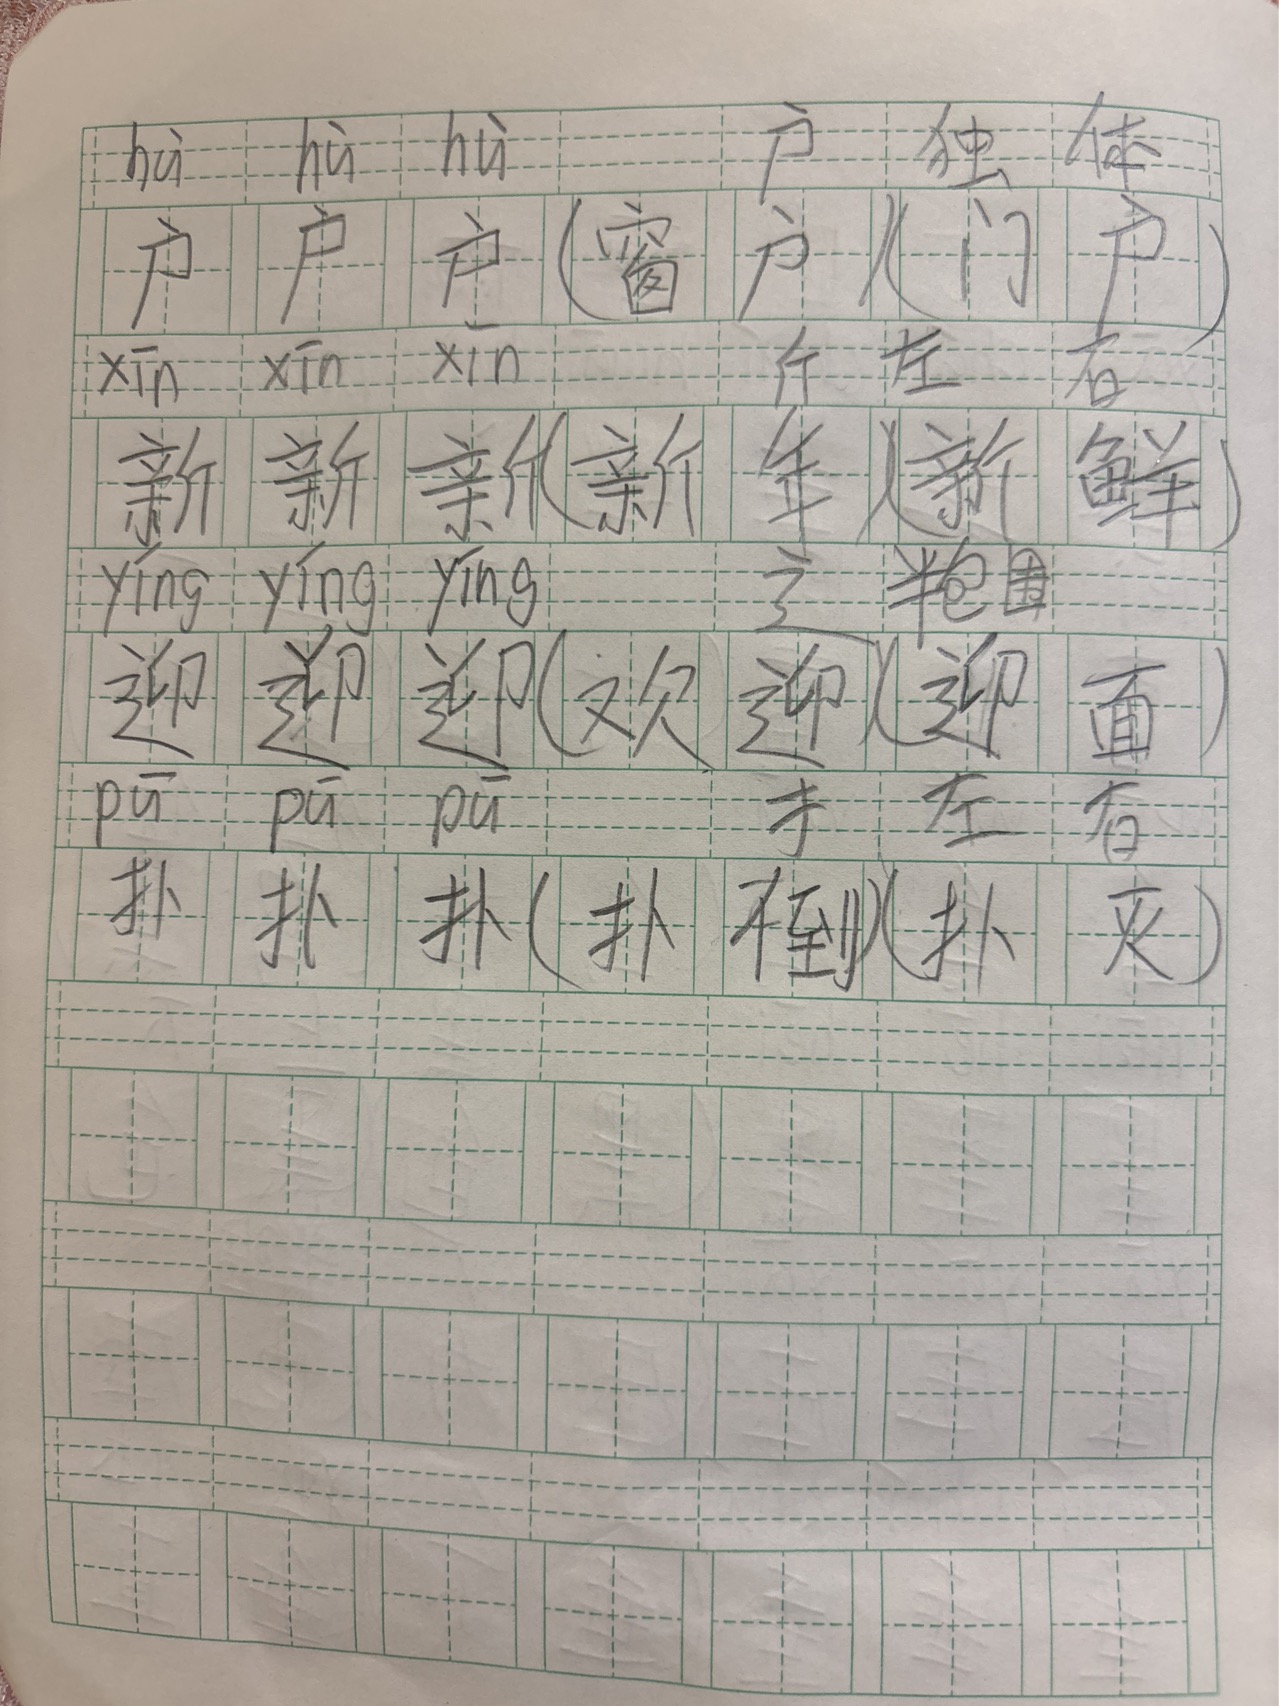 hù hù hù 户 独 体
户 户 户 (窗 户) (门 户)
xīn xīn xīn 斤 左 右
新 新 新 (新 年) (新 鲜)
yíng yíng yíng 辶 半包围
迎 迎 迎 (欢 迎) (迎 面)
pū pū pū 扌 左 右
扑 扑 扑 (扑 倒) (扑 灭)